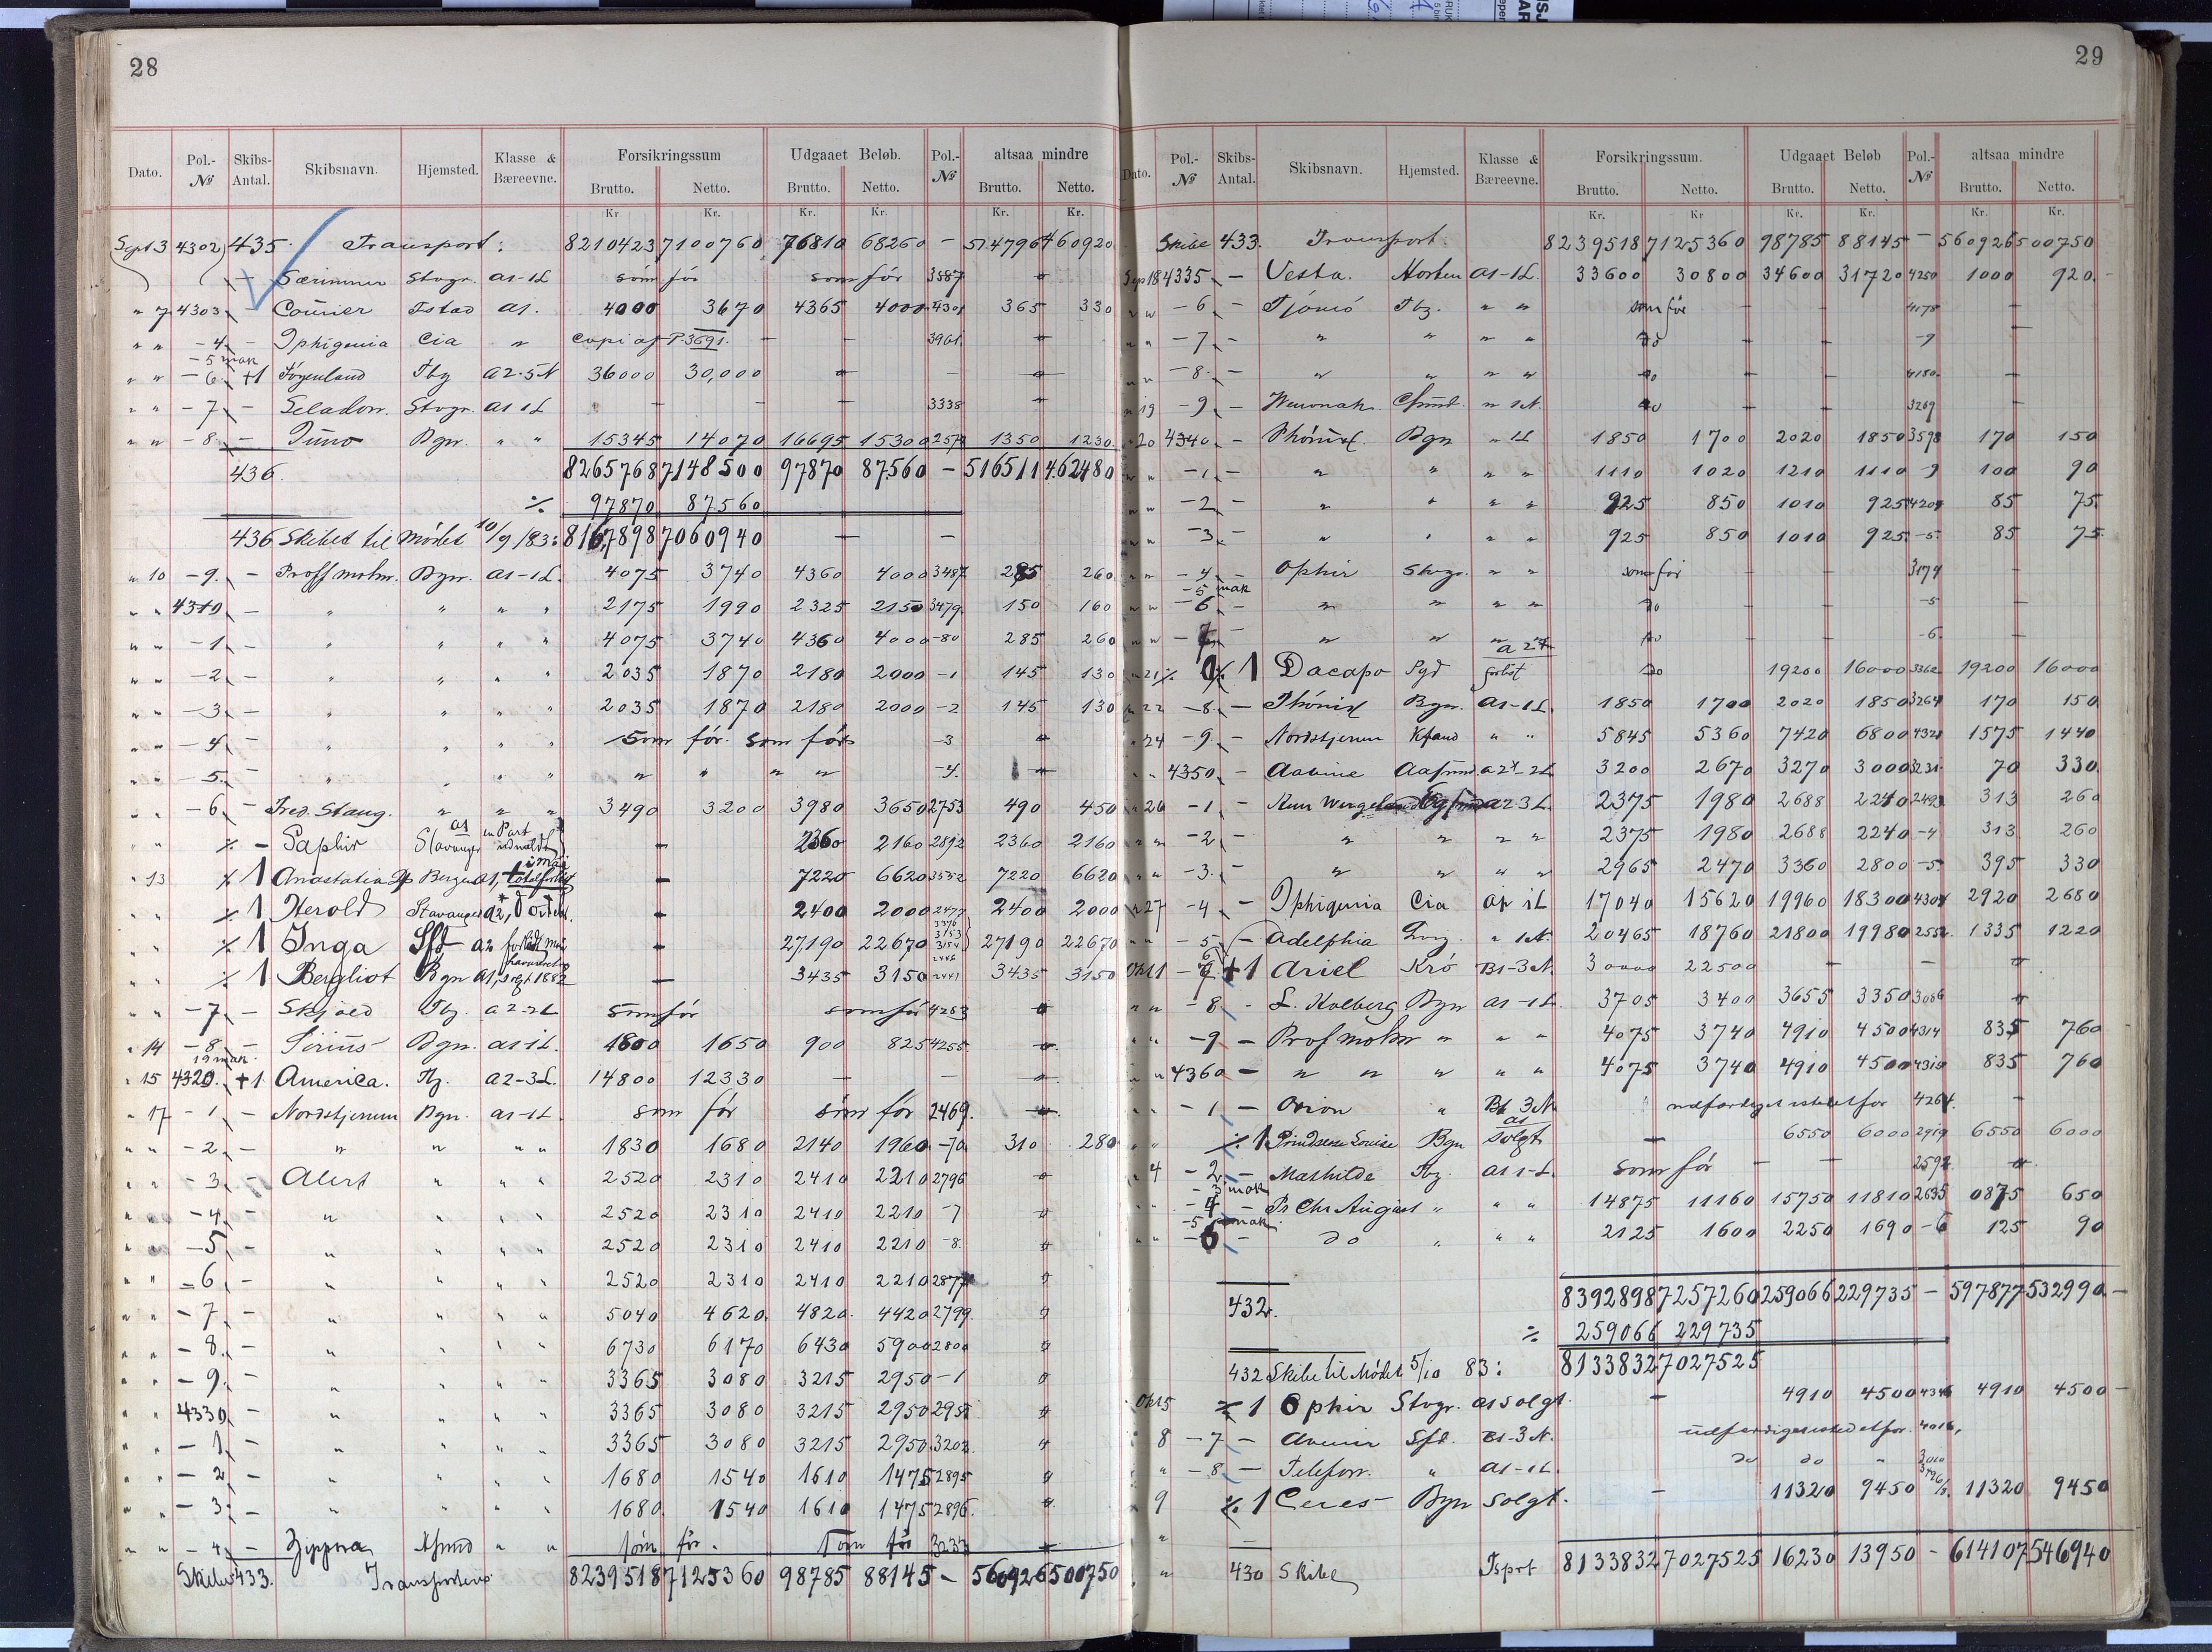 28
Dato. Pol.-№ Skibs-Antal. Skibsnavn. Hjemsted. Klasse & Bæreevne. Forsikringssum Brutto. Netto. Udgaaet Beløb. Brutto. Netto. Pol.-№ altsaa mindre Brutto. Netto.
Kr Kr. Kr. Kr. Kr. Kr.
Sept 3 4302 435 Transport: 8210423 7100760 76810 68260 – 514796 460920
– Særimner Stvgr. a1-1L som før som før 3587
" 7 4303 – Courier Fstad a1. 4000 3670 4365 4000 4301 365 330
" " -4 – Iphigenia Cia " copi af P. 3691. – – 3961
-5 mak
" " -6 +1 Tbg a2-5N 36000 30,000 – –
" " -7 – Seladon. Stvgr. a1 1L – – – 3338
" " -8 – Juno Bgn. " " 15345 14070 16695 15300 2572 1350 1230
436. 8265768 7148500 97870 87560 – 516511 462480
% 97870 87560
436 Skibet til Mødet 10/9/83: 8167898 7060940 – –
" 10 -9 – Proff mohn. Bgn. a1-1L. 4075 3740 4360 4000 3487 285 260
" " 4310 – " " " " 2175 1990 2325 2150 3479 150 160
" " -1 – " " " " 4075 3740 4360 4000 -80 285 260
" " -2 – " " " " 2035 1870 2180 2000 -1 145 130
" " -3 – " " " " 2035 1870 2180 2000 -2 145 130
" " -4 – " " " " som før. som før -3
" " -5 – " " " " " " " " -4.
" " -6 – Fred. Stang. " " " 3490 3200 3980 3650 2753 490 450
" " % – Saphir Stavanger a1 en Part udmeldt – 2360 2160 2892 2360 2160
" 13 % 1 Anastatia Bergen a1, totalforlist i mai – 7220 6620 3552 7220 6620
" " % 1 Herold Stavanger a2, – 2400 2000 2477 2400 2000
" " % 1 Inga Sfd a2 – 27190 22670 3153 3154 27190 22670
" " % 1 Bergliot Bgn a1, 1882 – 3435 3150 2441 3435 3150
" " -7 – Skjold Tbg. a2-2L som før som før 4283
" 14 -8 – Sirius Bgn. a1 1L. 1800 1650 900 825 4255
19 mak.
" 15 4320. +1 America. Tbg. a2-3L. 14800 12330 – –
" 17 -1 – Nordstjernen Bgn. a1-1L. som før som før 2469.
" " -2 – " " " " 1830 1680 2140 1960 -70 310 280
" " -3 – Alert " " " 2520 2310 2410 2210 2796
" " -4 – " " " " 2520 2310 2410 2210 -7
" " -5 – " " " " 2520 2310 2410 2210 -8
" " -6 – " " " " 2520 2310 2410 2210 2877
" " -7 – " " " " 5040 4620. 4820. 4420 2799
" " -8 – " " " " 6730 6170 6430 5900 2800
" " -9 – " " " " 3365 3080 3215 2950 -1
" " 4330 – " " " " 3365 3080 3215 2950
" " -1 – " " " " 3365 3080 3215 2950 3202
" " -2 – " " " " 1680 1540 1610 1475 2895
" " -3 – " " " " 1680. 1540 1610 1475 2896.
" " -4 – Zippora " " som før. som før 3237
Skibe 433. Transporteres 8239518 7125360 98785 88145 – 560926 500750
29
Dato. Pol.-№ Skibs-Antal. Skibsnavn. Hjemsted. Klasse & Bæreevne. Forsikringssum. Brutto. Netto. Udgaaet Beløb Brutto. Netto. Pol.-№ altsaa mindre Brutto. Netto.
Kr. Kr Kr. Kr. Kr. Kr.
Skibe 433. Transport. 8239518 7125360 98785 88145 – 560926 500750
Sep 18 4335 – Vesta. Horten a1-1L. 33600 30800 34600 31720 4250 1000 920.
" " -6 – Tjömö Tbg. " " som før – – 4078 –
" " -7 – " " " " do – – -9 –
" " -8 – " " " " do – – 4180 –
" 19 -9 – Wenonah. " 1N. do – – 3269 –
" 20 4340 – Phönix. Bgn " 1L 1850 1700 2020 1850 3598 170 150
" " -1 – " " " " 1110 1020 1210 1110 -9 100 90
" " -2 – " " " " 925 850 1010 925 4204 85 75.
" " -3 – " " " " 925 850 1010 925 -5 85 75.
" " -4 – Ophir Stvgr. " " som før – – 3174 –
-5 mak
" " -6 – " " " " do – – -5 –
" " -7 – " " " " do – – -6 –
" 21 % % 1 Dacapo Sgd a2 forlist do 19200 16000 3362 19200 16000
" 22 -8 – Phönix Bgn. a1-1L. 1850 1700 2020 1850 3264 170 150
" 24 -9 – Nordstjernen " " 5845 5360 7420 6800 4321 1575 1440
" " 4350 – Aavine a2*-2L 3200 2670 3270 3000 3231 70 330.
" 26 -1 – Henr Wergeland a2-3L. 2375 1980 2688 2240 2493 313 260
" " -2 – " " " " 2375 1980 2688 2240 -4 313 260
" " -3 – " " " " 2965 2470 3360 2800 -5. 395 330
" 27 -4 – Iphigenia Cia a1 1L 17040 15620 19960 18300 4304 2920 2680
" " -5 – Adelphia " 1N. 20465 18760 21800 19980 2552. 1335 1220
Okt 1 -7 +1 Ariel Krö B1-3N. 30000 22500 – –
" " -8 – L. Holberg Bgn a1-1L. 3705 3400 3655 3350 3086
" " -9 – Prof mohn " " " 4075 3740 4910 4500 4314 835 760
" " 4360 – " " " " " 4075 3740 4910 4500 4310 835 760
" " -1 – Orion " B1 3N. udfærdiget istedetfor 4264. –
" " % 1 Prindsesse Louise Bgn a1 solgt – 6550 6000 2919 6550 6000
" 4 -2 – Mathilde Tbg. a1 1-L. som før – – 2592
-3 mak
" " -4 – Pr Chr August " " " 14875 11160 15750 11810 2635 0875 650
-5 mak
" " -6 – do " " " 2125 1600 2250 1690 -6 125 90
432. 8392898 7257260 259066 229735 – 597877 532990. –
% 259066 229735
432 Skibe til Mødet 5/10 83: 8133832 7027525
Okt 5 % 1 Ophir Stvgr. a1 solgt. – 4910 4500 4346 4910 4500 –
8 -7 – Avenir Sfd. B1-3N. udfærdiget istedetfor. 4016,
" -8 – Telefon. " a1-1L. do do "
9 % 1 Ceres Bgn solgt. – 11320 9450 11320 9450
" –
" 430 Skibe Tsprt 8133832 7027525 16230 13950 – 614107 546940